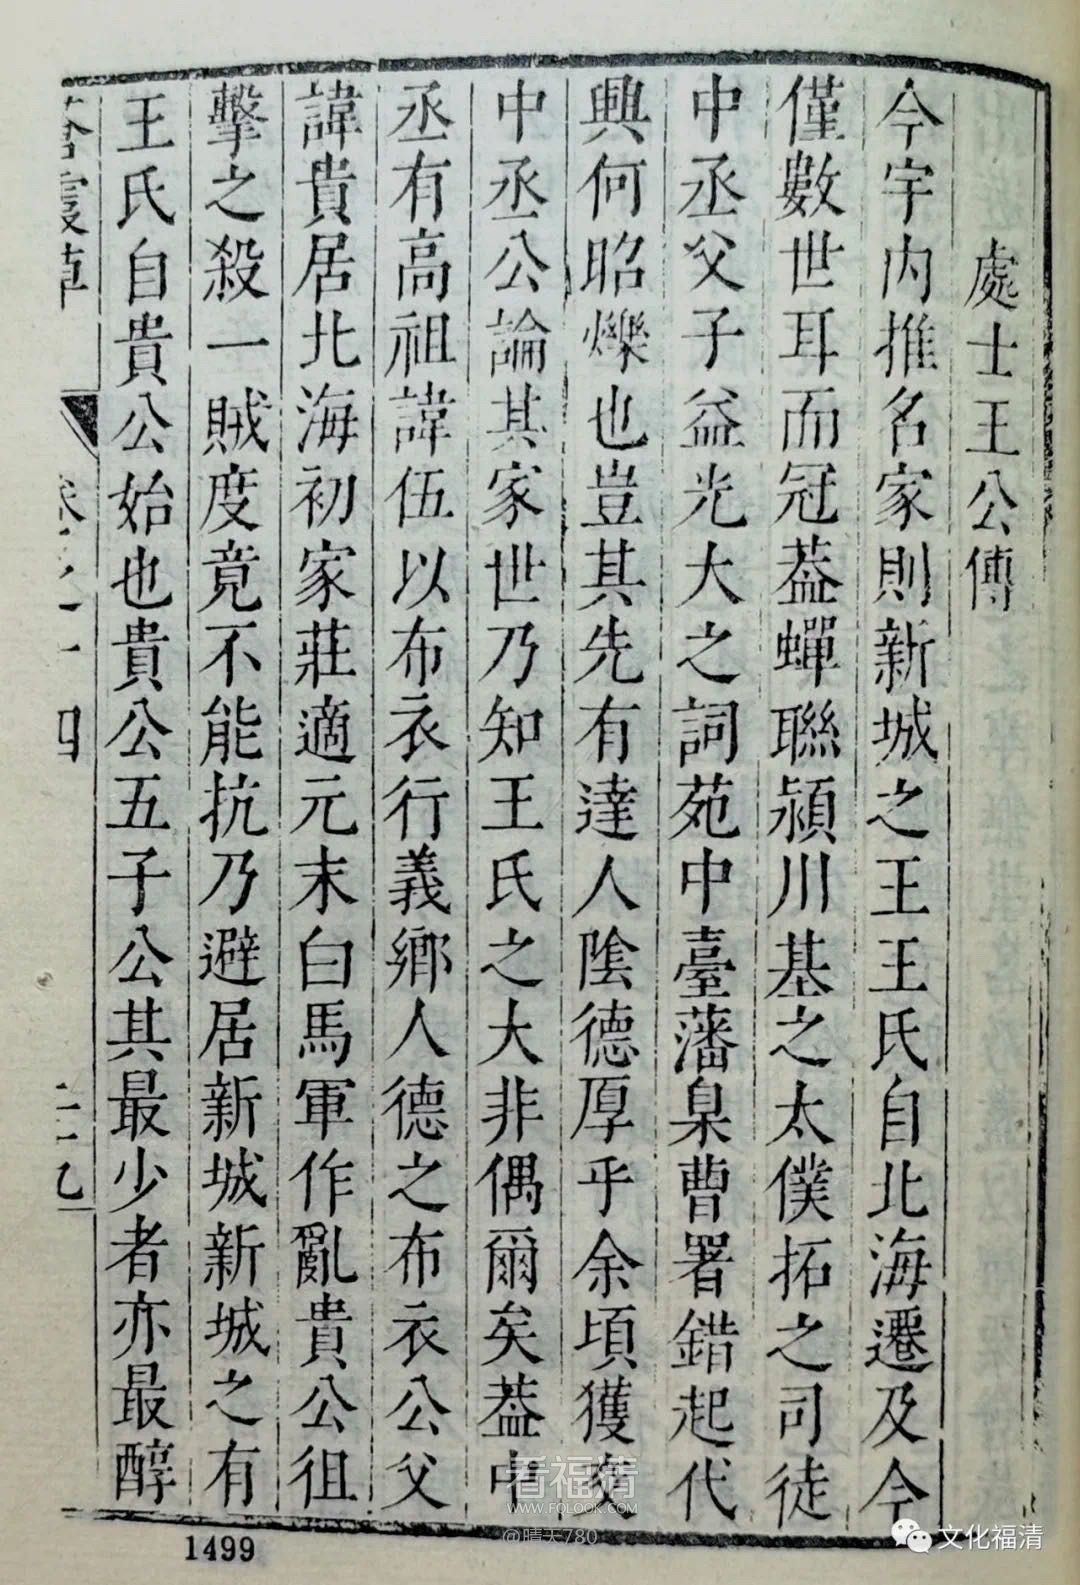 處士王公傳
今宇内推名家則新城之王王氏自北海遷及今
僅數世耳而冠葢蟬聯潁川基之太僕拓之司徒
中丞父子益光大之詞苑中臺藩臬曹署錯起代
興何昭爍也豈其先有達人陰德厚乎余頃獲交
中丞公論其家世乃知王氏之大非偶爾矣葢中
丞有高祖諱伍以布衣行義鄉人德之布衣公父
諱貴居北海初家莊適元末白馬軍作亂貴公徂
擊之殺一賊度竟不能抗乃避居新城新城之有
王氏自貴公始也貴公五子公其最少者亦最醇
蒼霞草
卷之十四
1499
看福清
WWW.FQLOOK.COM
@晴天780
文化福清